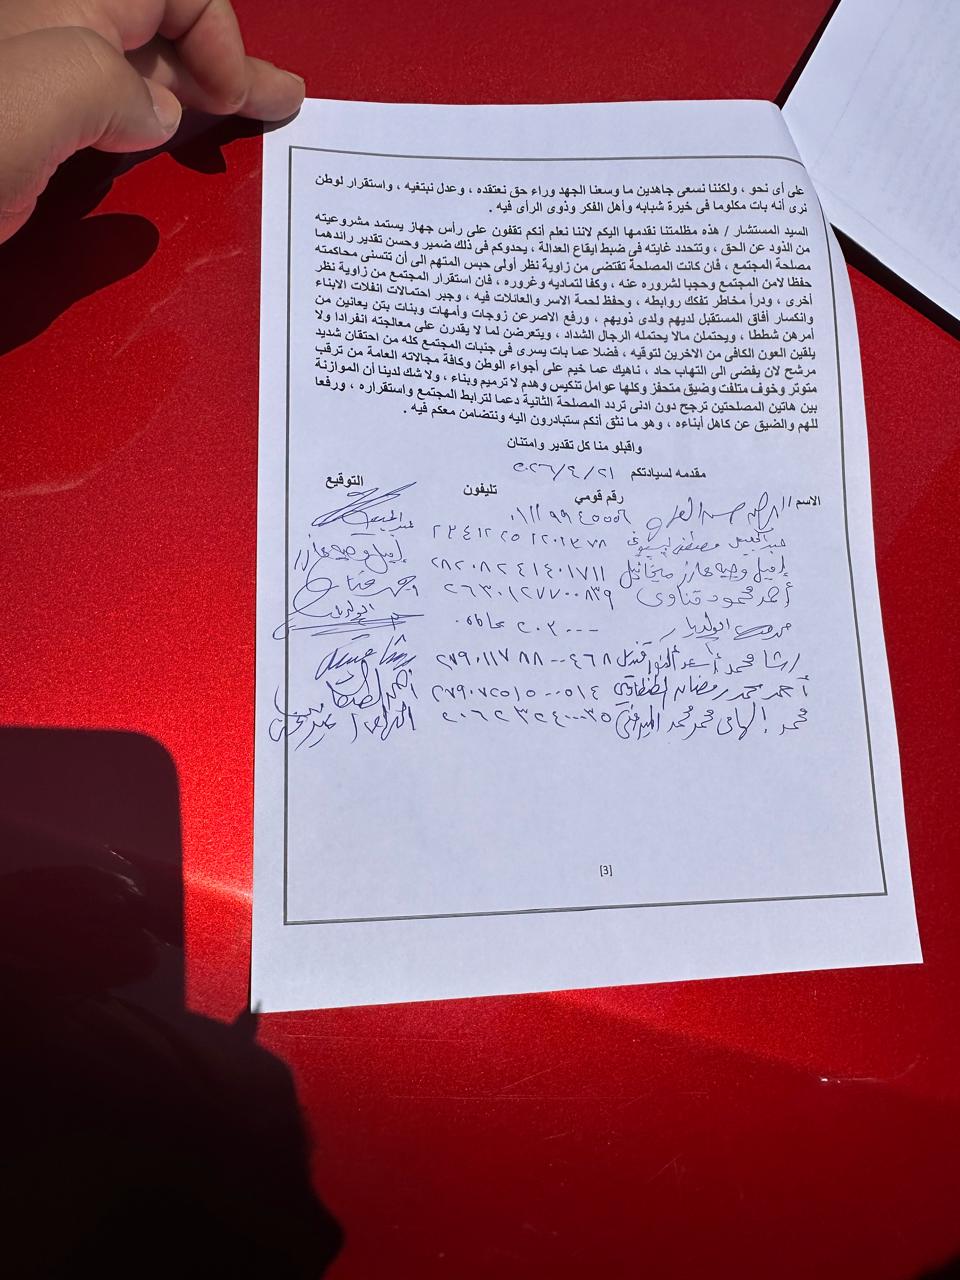 على أى نحو ، ولكننا نسعى جاهدين ما وسعنا الجهد وراء حق نعتقده ، وعدل نبتغيه ، واستقرار لوطن
نرى أنه بات مكلوما فى خيرة شبابه وأهل الفكر وذوى الرأى فيه .
السيد المستشار / هذه مظلمتنا نقدمها اليكم لاننا نعلم أنكم تقفون على رأس جهاز يستمد مشروعيته
من الذود عن الحق ، وتتحدد غايته فى ضبط ايقاع العدالة ، يحدوكم فى ذلك ضمير وحسن تقدير رائدهما
مصلحة المجتمع ، فان كانت المصلحة تقتضى من زاوية نظر أولى حبس المتهم الى أن تتسنى محاكمته
حفظا لامن المجتمع وحجبا لشروره عنه ، وكفا لتماديه وغروره ، فان استقرار المجتمع من زاوية نظر
أخرى ، ودرأ مخاطر تفكك روابطه ، وحفظ لحمة الاسر والعائلات فيه ، وجبر احتمالات انفلات الابناء
وانكسار أفاق المستقبل لديهم ولدى ذويهم ، ورفع الاصر عن زوجات وأمهات وبنات بتن يعانين من
أمرهن شططا ، ويحتملن مالا يحتمله الرجال الشداد ، ويتعرضن لما لا يقدرن على معالجته انفرادا ولا
يلقين العون الكافى من الاخرين لتوقيه ، فضلا عما بات يسرى فى جنبات المجتمع كله من احتقان شديد
مرشح لان يفضى الى التهاب حاد ، ناهيك عما خيم على أجواء الوطن وكافة مجالاته العامة من ترقب
متوتر وخوف متلفت وضيق متحفز وكلها عوامل تنكيس وهدم لا ترميم وبناء ، ولا شك لدينا أن الموازنة
بين هاتين المصلحتين ترجح دون ادنى تردد المصلحة الثانية دعما لترابط المجتمع واستقراره ، ورفعا
للهم والضيق عن كاهل أبناءه ، وهو ما نثق أنكم ستبادرون اليه ونتضامن معكم فيه .
واقبلو منا كل تقدير وامتنان
مقدمه لسيادتكم ٢٠٢٦/٤/٢١
الاسم / رقم قومي تليفون التوقيع
عبد الجليل مصطفى
إميل وجيه عازر ميخائيل ٢٨٢٠٨٢٤١٤٠١٧١١ إميل وجيه عازر
أحمد محمود قناوى ٢٦٣٠١٢٧٧٠٠٨٣٩
رشا محمد أسعد قنديل ٢٧٩٠١١٧٨٨٠٠٤٦٨
أحمد محمد رمضان الطنطاوي ٢٧٩٠٧٢٥١٥٠٠٥١٤
محمد إلهامى محمد محمد الميرغني
[3]